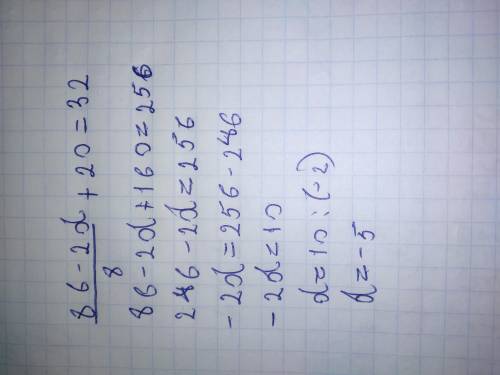 86-2d + 20=32
8
86-2d+160=256
246-2d=256
-2d=256-246
-2d=10
d=10:(-2)
d=-5